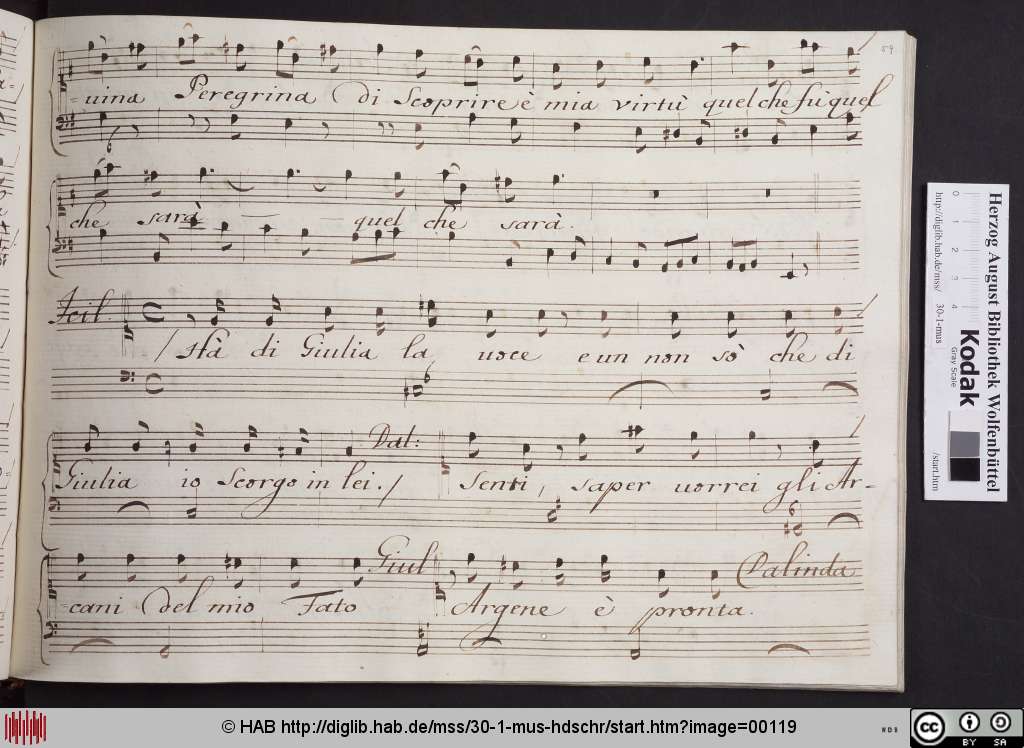 59
-uina Peregrina di Scoprire è mia virtù quel che fù quel
che sarà quel che sarà.
Icil.
/ Hà di Giulia la uoce e un non sò che di
Dal:
Giulia io Scorgo in lei. / Senti, saper uorrei gli Ar-
Giul Dalinda
-cani del mio Fato Argene è pronta.
Herzog August Bibliothek Wolfenbüttel
http://diglib.hab.de/mss/ 30-1-mus /start.htm
0 1 2 3 4
Kodak
Gray Scale
© HAB http://diglib.hab.de/mss/30-1-mus-hdschr/start.htm?image=00119
WDB
cc BY SA